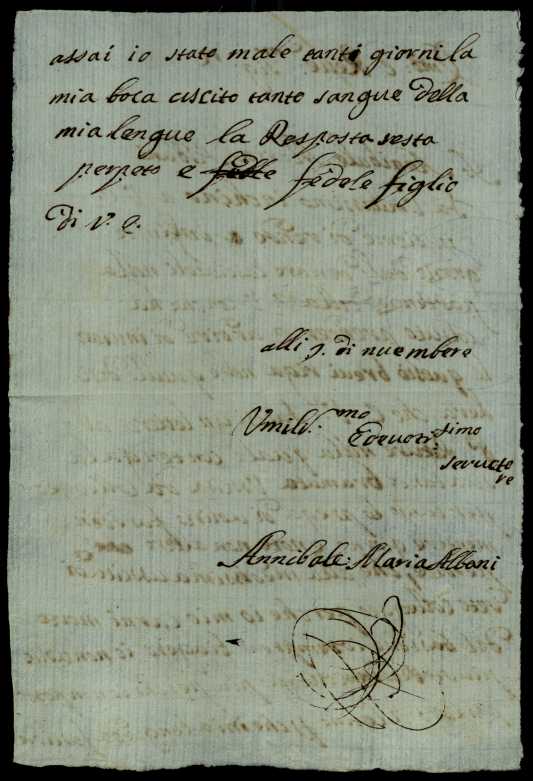 assai io stato male tanti giorni la
mia boca uscito tanto sangue della
mia lengue la Resposta resta
perpeto e fedele figlio
di V. E.
alli 9. di nuembere
Umilis.mo
E devotissimo
seructo
re
Annibale Maria Alboni